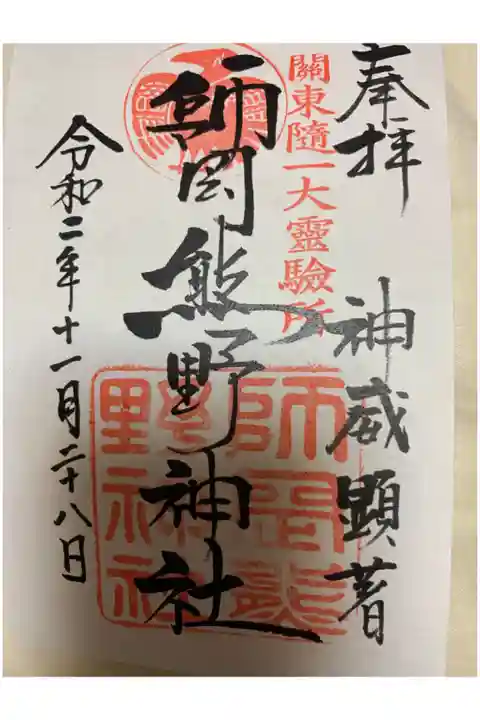 奉拝
神威顕著
關東随一大靈驗所
師岡熊野神社
師岡熊野神社
令和二年十一月二十八日